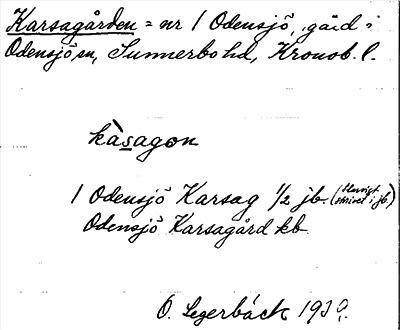 Karsagården = nr 1 Odensjö, gård i
Odensjö sn, Sunnerbo hd, Kronob. l.
kàsagon
1 Odensjö Karsag 1/2 jb. (
skrivet i jb.)
Odensjö Karsagård kb.
O. Legerbäck 193